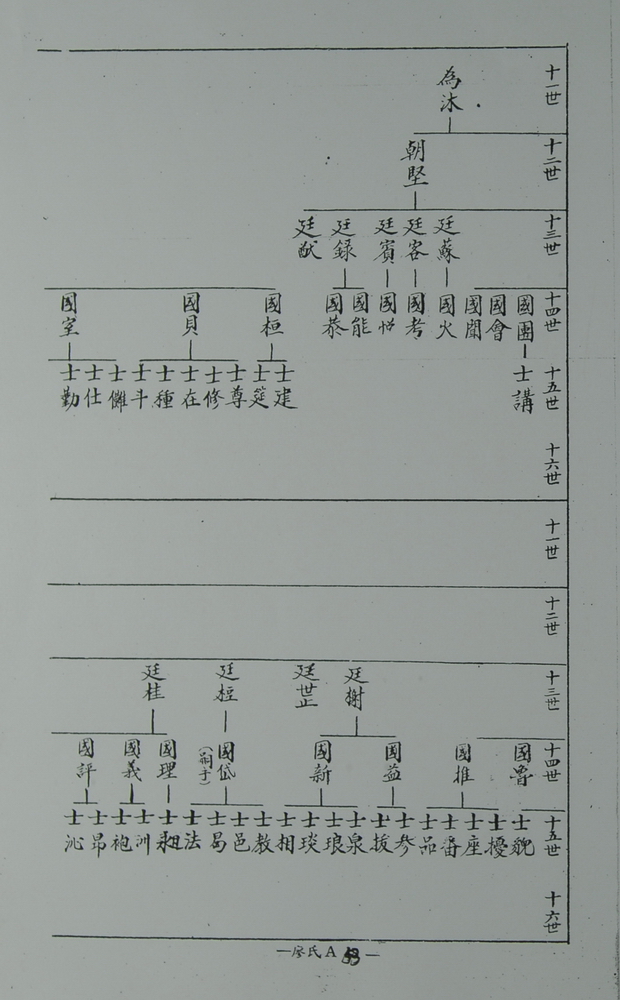 十一世
為沐
十二世
朝堅
十三世
廷蘇 廷客 廷賓 廷録 廷猷
十四世
國團 國會 國聞 國火 國考 國 國能 國恭 國桓 國貝 國室
十五世
士講 士建 士筵 士尊 士修 士在 士種 士斗 士儺 士仕 士勤
十六世
十一世
十二世
十三世
廷榭 廷 廷桓 廷桂
十四世
國魯 國推 國益 國新 國岱 (嗣子) 國理 國義 國評
十五世
士貌 士擾 士座 士 士品 士參 士拔 士泉 士琅 士琰 士相 士教 士邑 士曷 士法 士 士洲 士袍 士昂 士沁
十六世
—廖氏A 53—